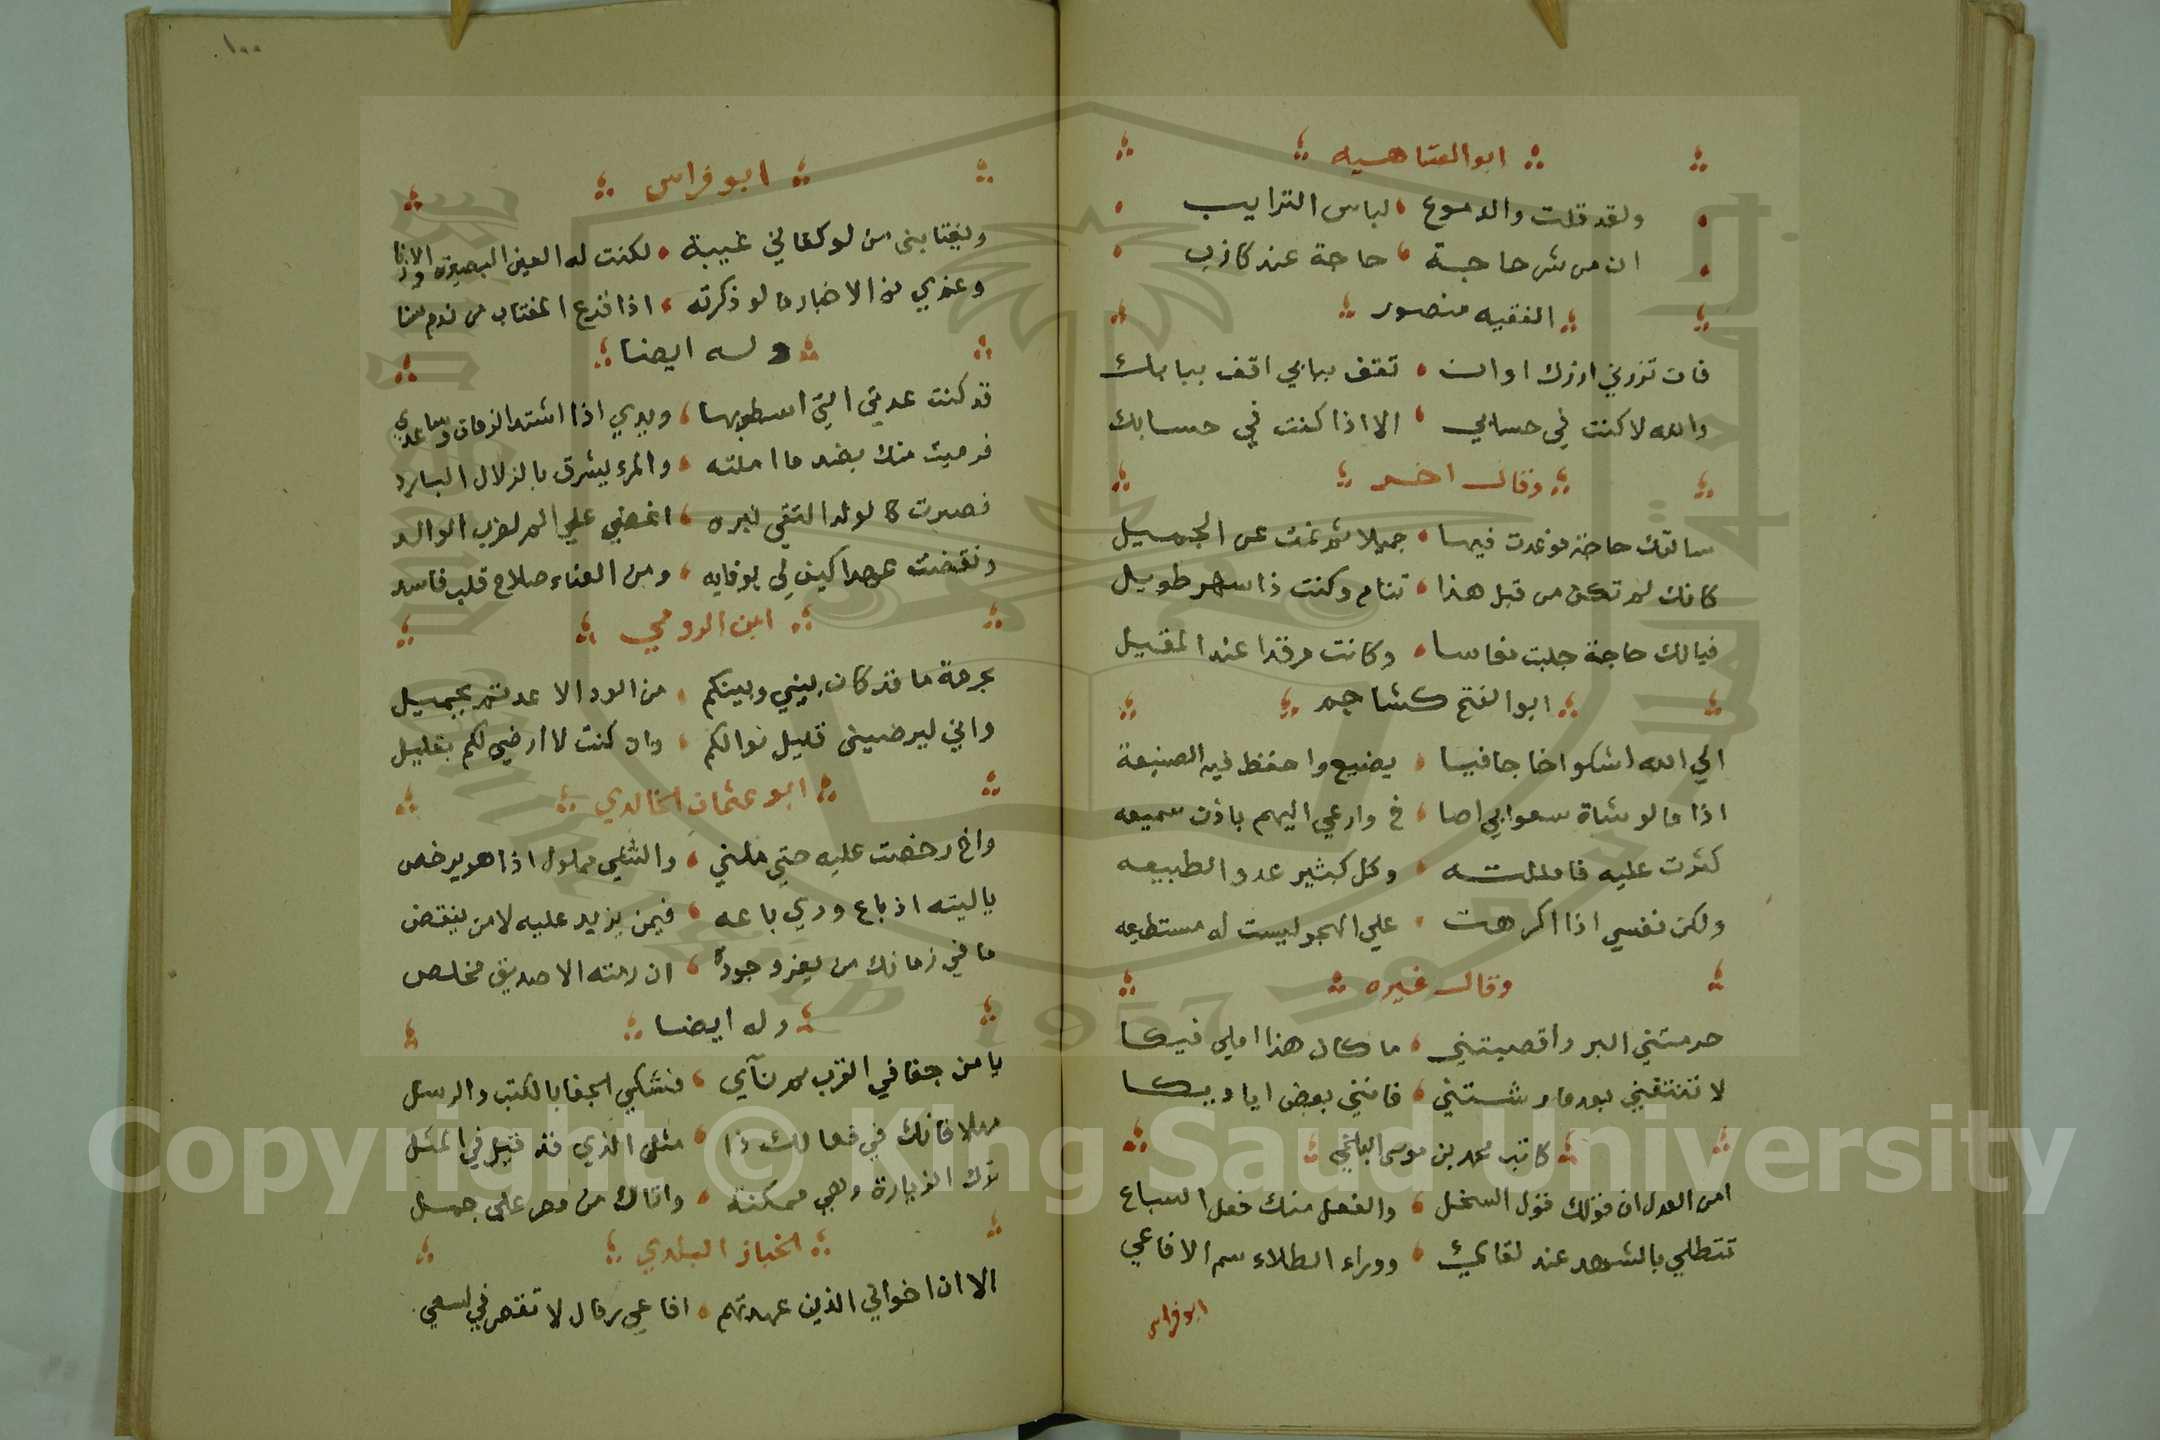 ابو العتاهيه
ولقد قلت والدموع لباس الترايب
ان من شر حاجة حاجة عند كاذب
الفقيه منصور
فان تزرني ازرك او ان تقف ببابي اقف ببابك
والله لا كنت في حسابي الا اذا كنت في حسابك
وقال اخر
سالتك حاجة فوعدت فيها جميلا ثم نمت عن الجميل
كانك لم تكن من قبل هذا تنام وكنت ذا سهر طويل
فيالك حاجة جلبت نعاسا وكانت مرقدا عند المقيل
ابو الفتح كشاجم
الي الله اشكوا اخا جافيا يضيع واحفظ فيه الصنيعة
اذا ما لوشاة سعوابي اصا خ وارعي اليهم باذن سميعه
كثرت عليه فامللته وكل كثير عدو الطبيعه
ولكن نفسي اذا اكرهت علي الهجر ليست له مستطيعه
وقال غيره
حرمتني البر واقصيتني ما كان هذا املي فيكا
لا تنتقني بعد ما رشتني فانني بعض اياديكا
كاتب محمد بن موسى البلخي
امن العدل ان قولك قول السخل والفعل منك فعل السباع
تتطلي بالشهد عند لقائي ووراء الطلاء سم الافاعي
ابو فراس
١٠٠
ابو فراس
ويغتابني من لو كفاني غيبة لكنت له العين البصيرة والاذنا
وعندي من الاخبار ما لو ذكرته اذا قرع المغتاب من ندم سنا
وله ايضا
قد كنت عدتي التي اسطو بها ويدي اذا اشتد الزمان وساعدي
فرميت منك بضد ما املته والمرء يشرق بالزلال البارد
فصبرت كالولد التقي لبره اغضي علي الم لضرب الوالد
ونقضت عهدا كيف لي بوفايه ومن العناء صلاح قلب فاسد
ابن الرومي
بحرمة ما قد كان بيني وبينكم من الود الا عدتم بجميل
واني ليرضيني قليل نوالكم وان كنت لا ارضي لكم بقليل
ابو عثمان الخالدي
واخ رخصت عليه حتي ملني والشئ مملول اذا هو يرخص
ياليته اذ باع ودي باعه فيمن يزيد عليه لا من ينقص
ما في زمانك من يعز وجوده ان رمته الا صديق مخلص
وله ايضا
يا من جفا في القرب ثم نآي فشكي الجفا بالكتب والرسل
مهلا فانك في فعالك ذا مثل الذي قد قيل في المثل
ترك الزيارة وهي ممكنة واتاك من مصر علي جمل
الخباز البلدي
الا ان اخواني الذين عهدتهم افاعي رمال لا تقصر في لسعي
Copyright © King Saud University
1957